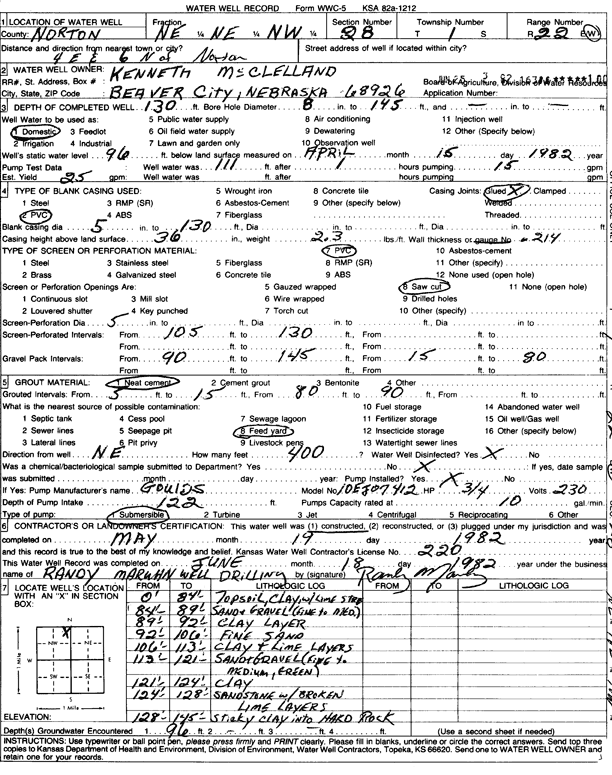 WATER WELL RECORD Form WWC-5 KSA 82a-1212
1 LOCATION OF WATER WELL Fraction Section Number Township Number Range Number
County: NORTON NE ¼ NE ¼ NW ¼ 28 T 1 S R 22 E/W
Distance and direction from nearest town or city? Street address of well if located within city?
4 E & 6 N of Norton
2 WATER WELL OWNER: KENNETH McCLELLAND
RR#, St. Address, Box # Board of Agriculture, Division of Water Resources
City, State, ZIP Code BEAVER CITY, NEBRASKA 68926 Application Number:
3 DEPTH OF COMPLETED WELL 130 ft. Bore Hole Diameter 8 in. to 145 ft., and in. to ft.
Well Water to be used as: 5 Public water supply 8 Air conditioning 11 Injection well
1 Domestic 3 Feedlot 6 Oil field water supply 9 Dewatering 12 Other (Specify below)
2 Irrigation 4 Industrial 7 Lawn and garden only 10 Observation well
Well's static water level 96 ft. below land surface measured on APRIL month 15 day 1982 year
Pump Test Data Well water was 111 ft. after 1 hours pumping 15 gpm
Est. Yield 25 gpm: Well water was ft. after hours pumping gpm
4 TYPE OF BLANK CASING USED: 5 Wrought iron 8 Concrete tile Casing Joints: Glued X Clamped
1 Steel 3 RMP (SR) 6 Asbestos-Cement 9 Other (specify below) Welded
2 PVC 4 ABS 7 Fiberglass Threaded
Blank casing dia 5 in. to 130 ft., Dia in. to ft., Dia in. to ft.
Casing height above land surface 36 in., weight 2.3 lbs./ft. Wall thickness or gauge No .214
TYPE OF SCREEN OR PERFORATION MATERIAL: 7 PVC 10 Asbestos-cement
1 Steel 3 Stainless steel 5 Fiberglass 8 RMP (SR) 11 Other (specify)
2 Brass 4 Galvanized steel 6 Concrete tile 9 ABS 12 None used (open hole)
Screen or Perforation Openings Are: 5 Gauzed wrapped 8 Saw cut 11 None (open hole)
1 Continuous slot 3 Mill slot 6 Wire wrapped 9 Drilled holes
2 Louvered shutter 4 Key punched 7 Torch cut 10 Other (specify)
Screen-Perforation Dia 5 in. to ft., Dia in. to ft., Dia in. to ft.
Screen-Perforated Intervals: From 105 ft. to 130 ft., From ft. to ft.
From ft. to ft., From ft. to ft.
Gravel Pack Intervals: From 90 ft. to 145 ft., From 15 ft. to 80 ft.
From ft. to ft., From ft. to ft.
5 GROUT MATERIAL: 1 Neat cement 2 Cement grout 3 Bentonite 4 Other
Grouted Intervals: From 5 ft. to 15 ft., From 80 ft. to 90 ft., From ft. to ft.
What is the nearest source of possible contamination: 10 Fuel storage 14 Abandoned water well
1 Septic tank 4 Cess pool 7 Sewage lagoon 11 Fertilizer storage 15 Oil well/Gas well
2 Sewer lines 5 Seepage pit 8 Feed yard 12 Insecticide storage 16 Other (specify below)
3 Lateral lines 6 Pit privy 9 Livestock pens 13 Watertight sewer lines
Direction from well NE How many feet 400 ? Water Well Disinfected? Yes X No
Was a chemical/bacteriological sample submitted to Department? Yes No X : If yes, date sample
was submitted month day year: Pump Installed? Yes X No
If Yes: Pump Manufacturer's name GOULDS Model No 10EJ07412 HP 3/4 Volts 230
Depth of Pump Intake 122 ft. Pumps Capacity rated at 10 gal./min.
Type of pump: 1 Submersible 2 Turbine 3 Jet 4 Centrifugal 5 Reciprocating 6 Other
6 CONTRACTOR'S OR LANDOWNER'S CERTIFICATION: This water well was (1) constructed, (2) reconstructed, or (3) plugged under my jurisdiction and was
completed on MAY month 19 day 1982 year
and this record is true to the best of my knowledge and belief. Kansas Water Well Contractor's License No. 220
This Water Well Record was completed on JUNE month 18 day 1982 year under the business
name of RANDY MARWAN WELL DRILLING by (signature)
7 LOCATE WELL'S LOCATION WITH AN "X" IN SECTION BOX: FROM TO LITHOLOGIC LOG FROM TO LITHOLOGIC LOG
0' 84' TOPSOIL, CLAY, W/ LIME STRE
84' 89' SAND & GRAVEL (FINE to MED)
89' 92' CLAY LAYER
92' 106' FINE SAND
106' 113' CLAY & LIME LAYERS
113' 121' SAND & GRAVEL (FINE to
MEDIUM, GREEN)
121' 124' CLAY
124' 128' SANDSTONE w/ BROKEN
LIME LAYERS
128' 145' STICKY CLAY INTO HARD ROCK
N
X
NW NE
W E
SW SE
S
1 Mile
1 Mile
ELEVATION:
Depth(s) Groundwater Encountered 1 96 ft. 2 ft. 3 ft. 4 ft. (Use a second sheet if needed)
INSTRUCTIONS: Use typewriter or ball point pen, please press firmly and PRINT clearly. Please fill in blanks, underline or circle the correct answers. Send top three
copies to Kansas Department of Health and Environment, Division of Environment, Water Well Contractors, Topeka, KS 66620. Send one to WATER WELL OWNER and
retain one for your records.